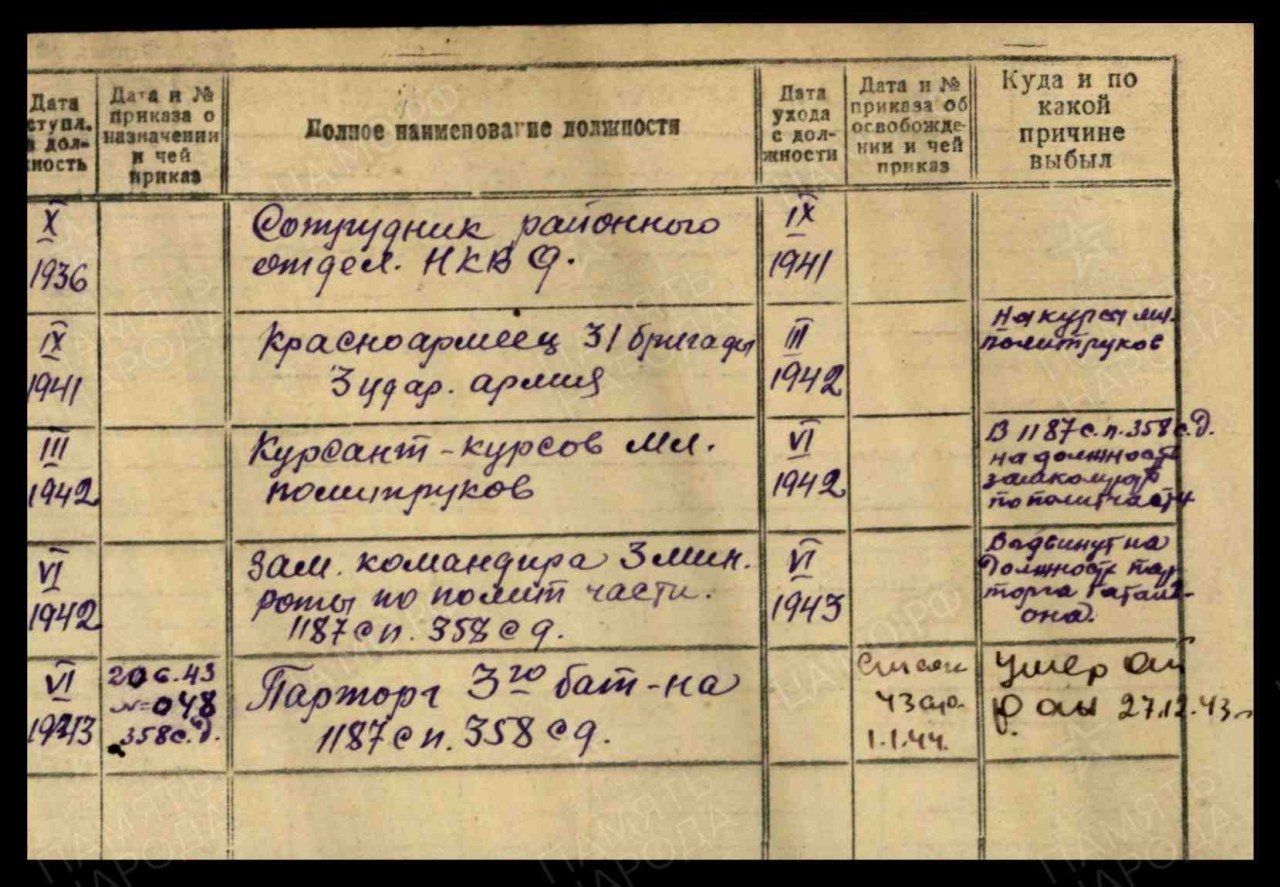 Дата
ступл.
в дол-
жность
Дата и №
приказа о
назначении
и чей
приказ
Полное наименование должности
Дата
ухода
с дол-
жности
Дата и №
приказа об
освобожде-
нии и чей
приказ
Куда и по
какой
причине
выбыл
X
1936
Сотрудник районного
отдел. НКВД.
IX
1941
IX
1941
Красноармеец 31 бригады
3 удар. армия
III
1942
На курсы мл.
политруков
III
1942
Курсант-курсов мл.
политруков
VI
1942
В 1187 с.п. 358 с.д.
на должность
по политчасти
VI
1942
Зам. командира 3 мин.
роты по полит части.
1187 сп. 358 сд.
VI
1943
Выдвинут на
должность пар
торга батальо-
она.
VI
1943
20 6.43
№ 048
358 с.д.
Парторг 3го бат-на
1187 сп. 358 сд.
43
1.1.44.
Умер от
ран 27.12.43г
ПАМЯТЬ
НАРОДА
ПАМО.РФ